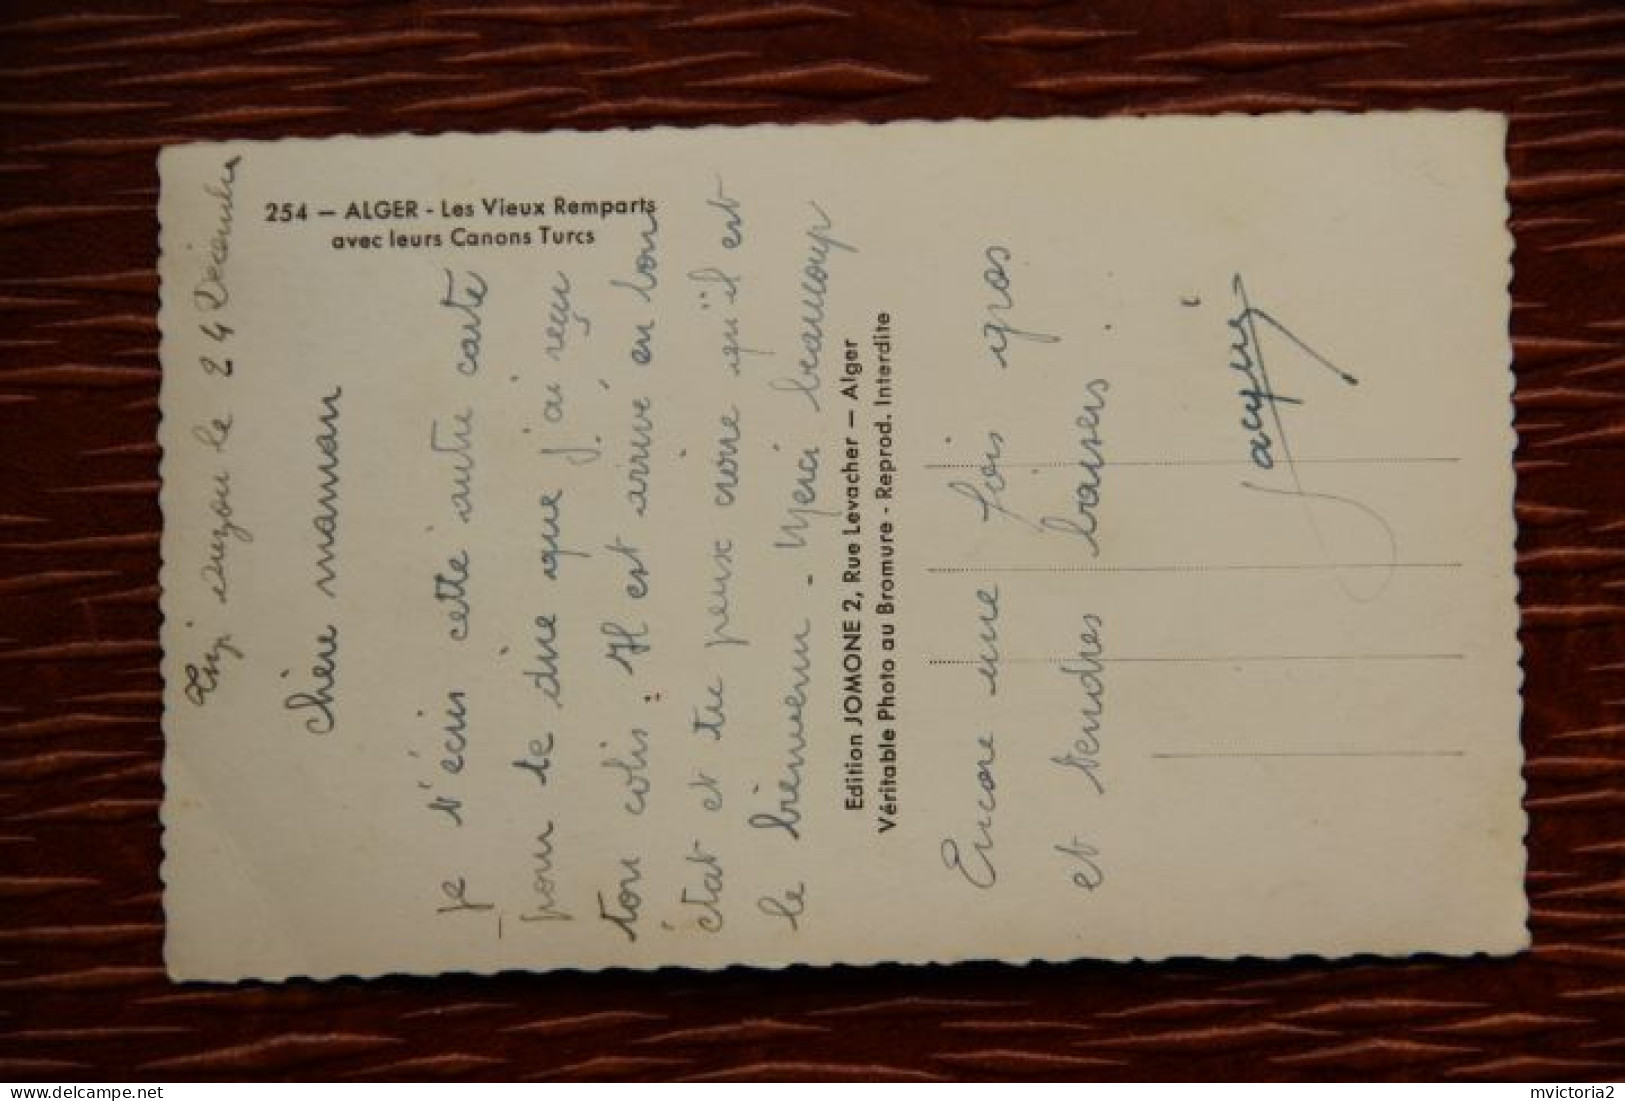 254 — ALGER - Les Vieux Remparts
avec leurs Canons Turcs
Tizi ouzou le 24 Décembre
chère maman
je t'écris cette autre carte
pour te dire que j'ai reçu
ton colis. Il est arrivé en bon
état et tu peux croire qu'il est
le bienvenu - Merci beaucoup
Edition JOMONE 2, Rue Levacher — Alger
Véritable Photo au Bromure - Reprod. Interdite
Encore une fois gros
et tendres baisers
Jacquie
mvictoria2